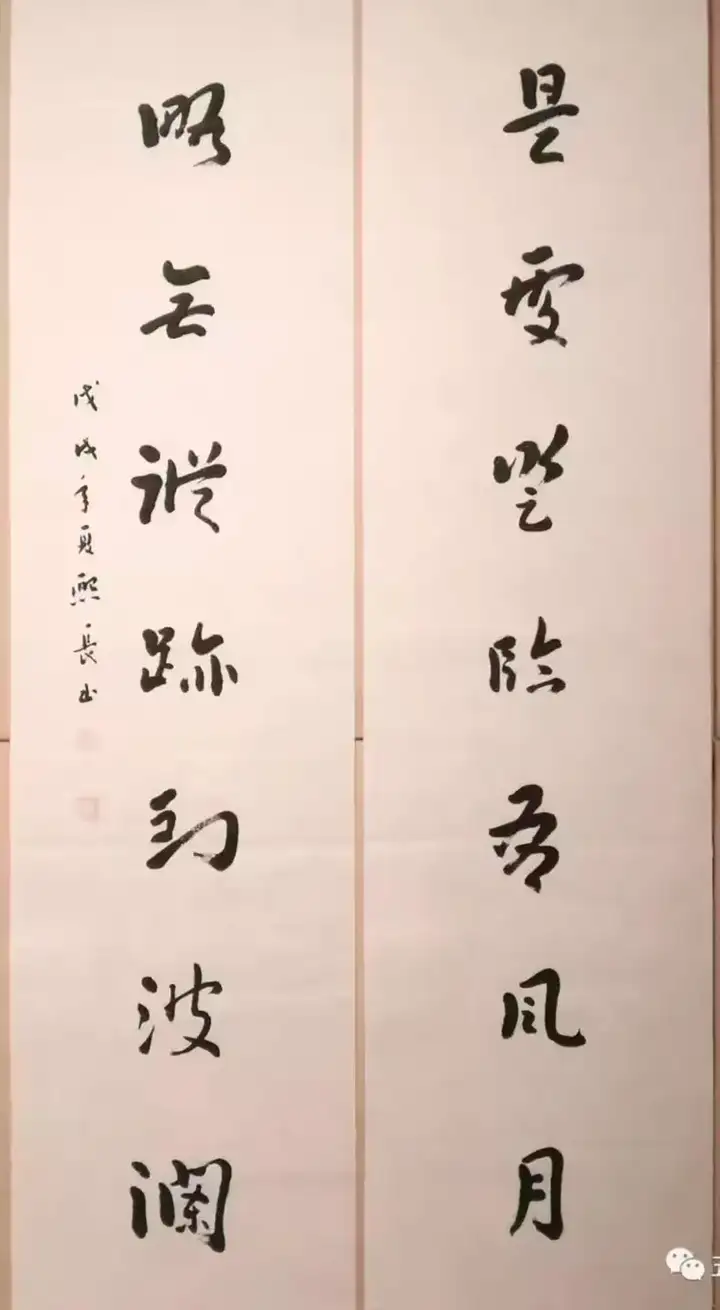 是處登臨有風月
略無蹤跡到波瀾
戊戌年夏熙長书